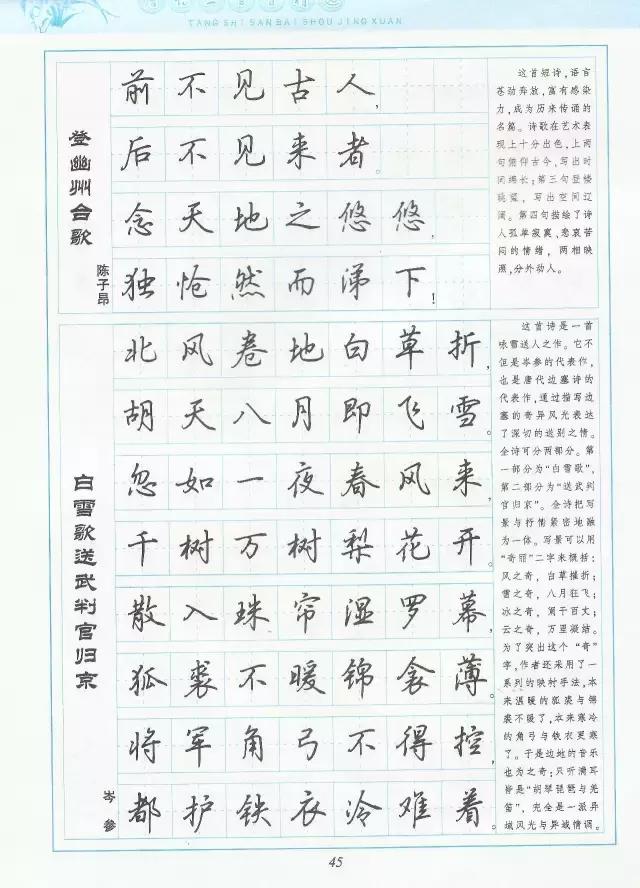 TANG SHI SAN BAI SHOU JING XUAN
登幽州台歌
陈子昂
前不见古人，
后不见来者。
念天地之悠悠，
独怆然而涕下！
这首短诗，语言
苍劲奔放，富有感染
力，成为历来传诵的
名篇。诗歌在艺术表
现上十分出色，上两
句俯仰古今，写出时
间绵长；第三句登楼
眺望，写出空间辽
阔。第四句描绘了诗
人孤单寂寞，悲哀苦
闷的情绪，两相映
照，分外动人。
白雪歌送武判官归京
岑参
北风卷地白草折，
胡天八月即飞雪。
忽如一夜春风来，
千树万树梨花开。
散入珠帘湿罗幕，
狐裘不暖锦衾薄。
将军角弓不得控，
都护铁衣冷难着。
这首诗是一首
咏雪送人之作。它不
但是岑参的代表作，
也是唐代边塞诗的
代表作，通过描写边
塞的奇异风光表达
了深切的送别之情。
全诗可分两部分。第
一部分为“白雪歌”，
第二部分为“送武判
官归京”。全诗把写
景与抒情紧密地融
为一体。写景可以用
“奇丽”二字来概括：
风之奇，白草摧折；
雪之奇，八月狂飞；
冰之奇，阑干百丈；
云之奇，万里凝结。
为了突出这个“奇”
字，作者还采用了一
系列的映衬手法，本
来温暖的狐裘与锦
裘不暖了，本来寒冷
的角弓与铁衣更寒
了。于是边地的音乐
也为之奇；只听满耳
皆是“胡琴琵琶与羌
笛”，完全是一派异
域风光与异域情调。
45